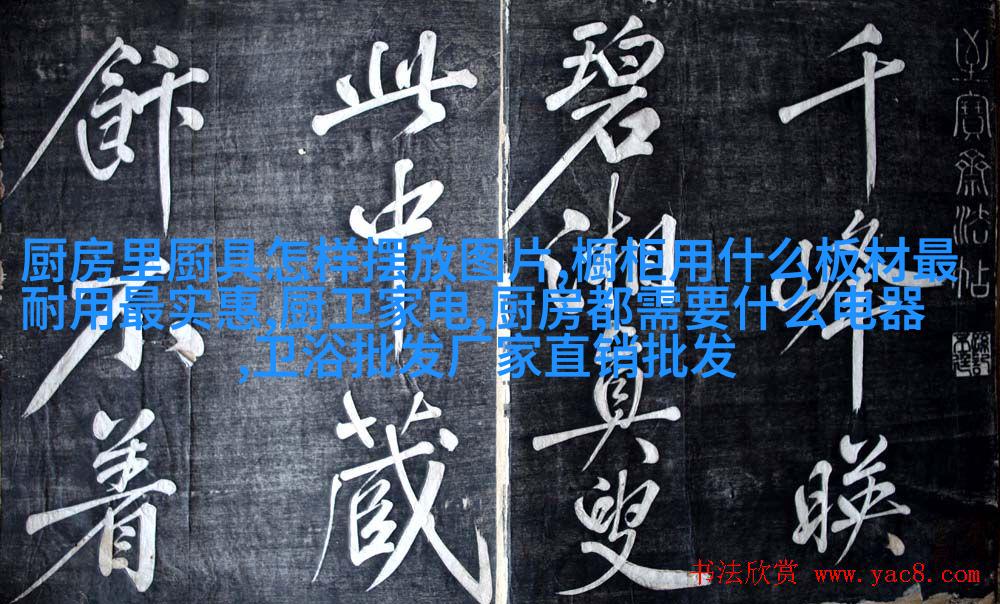 千峰映
碧湘真叟
此中藏
飰不
寶齋法帖
厨房里厨具怎样摆放图片,橱柜用什么板材最
耐用最实惠,厨卫家电,厨房都需要什么电器
,卫浴批发厂家直销批发
书法欣赏 www.yac8.com